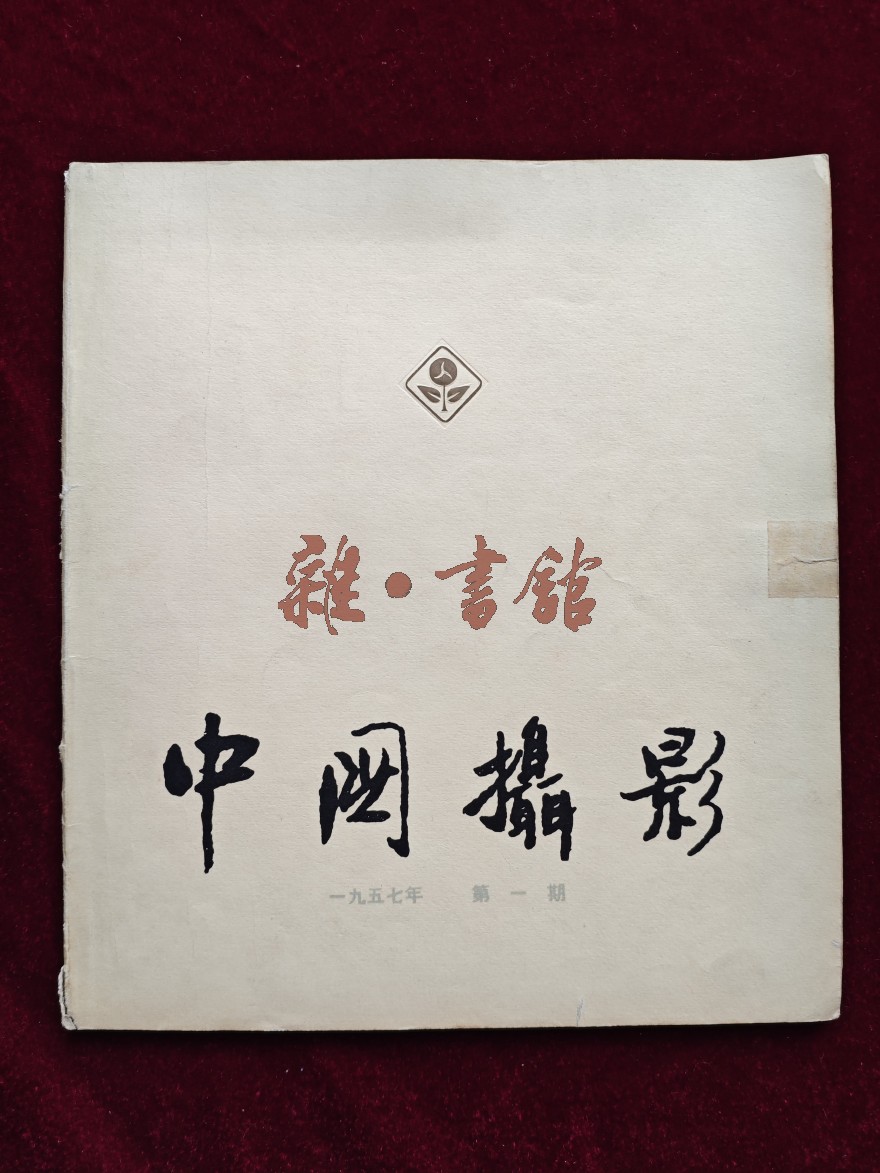 雜·書館
中國攝影
一九五七年 第一期